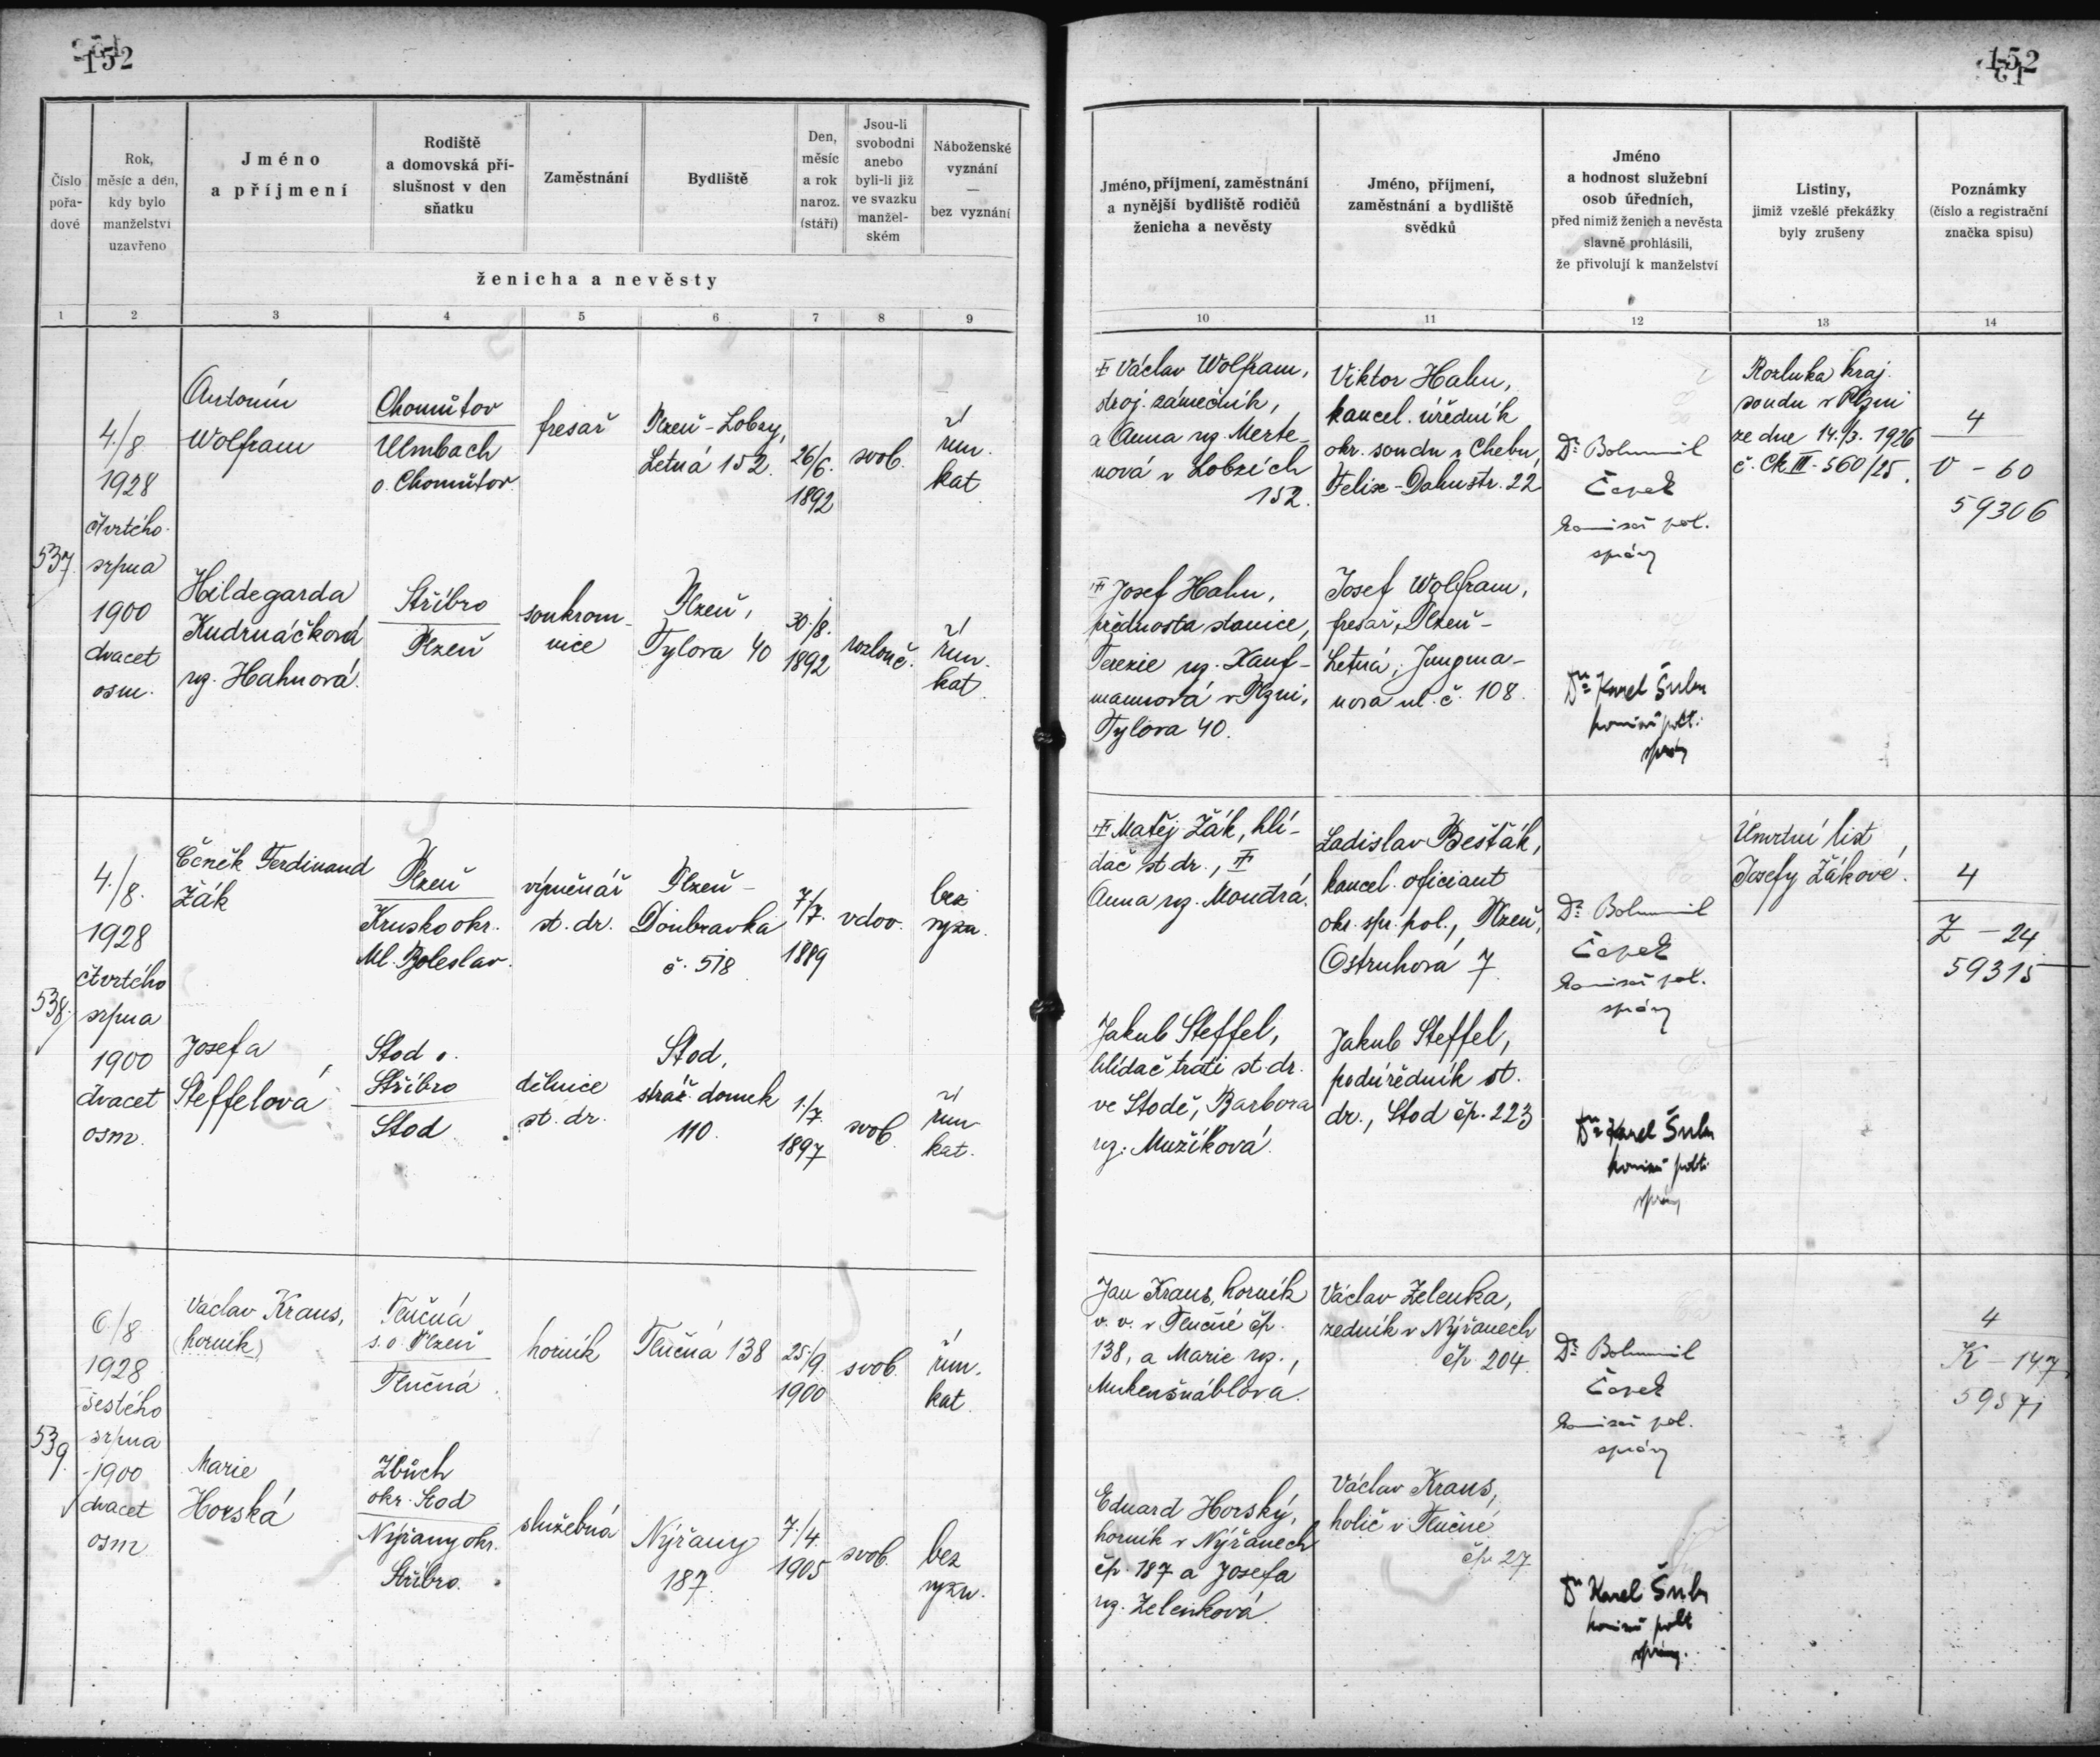 152
152
Číslo pořa-dové
Rok, měsíc a den, kdy bylo manželství uzavřeno
Jméno a příjmení
Rodiště a domovská pří-slušnost v den sňatku
Zaměstnání
Bydliště
Den, měsíc a rok naroz. (stáří)
Jsou-li svobodni anebo byli-li již ve svazku manžel-ském
Náboženské vyznání — bez vyznání
ženicha a nevěsty
Jméno, příjmení, zaměstnání a nynější bydliště rodičů ženicha a nevěsty
Jméno, příjmení, zaměstnání a bydliště svědků
Jméno a hodnost služební osob úředních, před nimiž ženich a nevěsta slavně prohlásili, že přivolují k manželství
Listiny, jimiž vzešlé překážky byly zrušeny
Poznámky (číslo a registrační značka spisu)
1 2 3 4 5 6 7 8 9 10 11 12 13 14
537.
4./8
1928
čtvrtého
srpna
1900
dvacet
osm.
Antonín
Wolfram
Chomútov
Ulmbach
o. Chomútov.
fresař
Plzeň-Lobzy,
Letná 152.
26/6.
1892
svob.
řím.
kat.
Hildegarda
Kudrnáčková
roz. Hahnová.
Stříbro
Plzeň
soukrom-
nice
Plzeň,
Tylova 40
30./8.
1892
rozlouč.
řím.
kat.
Václav Wolfram,
stroj. zámečník,
a Anna roz. Merte-
nová v Lobzích
152.
Josef Hahn,
přednosta stanice,
Terezie roz. Kauf-
mannová v Plzni,
Tylova 40.
Viktor Hahn,
kancel. úředník
okr. soudu v Chebu,
Felix-Dahnstr. 22
Josef Wolfram,
fresař, Plzeň-
Letná, Jungma-
nova ul. č. 108.
Dr. Bohumil
Čapek
komisař pol.
správy
Dr. Karel
komisař polit.
správy
Rozluka kraj.
soudu v Plzni
ze dne 14./3. 1926
č. Ck III-560/25.
4
V-60
59306
538.
4./8.
1928
čtvrtého
srpna
1900
dvacet
osm.
Čeněk Ferdinand
Žák
Plzeň
Krusko okr.
Ml. Boleslav.
výpučnář
st. dr.
Plzeň-
Doubravka
č. 518
7/7.
1889
vdov.
bez
vyzn.
Josefa
Steffelová
Stod o.
Stříbro
Stod
dělnice
st. dr.
Stod,
stráž. domek
110.
1/7.
1897
svob.
řím.
kat.
Matěj Žák, hlí-
dač st dr.,
Anna roz. Moudrá.
Jakub Steffel,
hlídač trati st. dr.
ve Stodě, Barbora
roz. Mužíková.
Ladislav Bešťák,
kancel. oficiant
okr. spr. pol., Plzeň,
Ostruhová 7
Jakub Steffel,
podúředník st.
dr., Stod čp. 223
Dr. Bohumil
Čapek
komisař pol.
správy
Dr. Karel
komisař polit.
správy
Úmrtní list
Josefy Žákové.
4
Z-24
59315
539.
6./8
1928
šestého
srpna
1900
dvacet
osm
Václav Kraus,
(horník)
Tlučná
s. o. Plzeň
Tlučná
horník
Tlučná 138
25/9.
1900
svob.
řím.
kat.
Marie
Horská
Zbůch
okr. Stod
Nýřany okr.
Stříbro.
služebná
Nýřany
187.
7./4.
1905
svob.
bez
vyzn.
Jan Kraus, horník
v. v. v Tlučné čp.
138, a Marie roz.
Mukenšnáblová.
Eduard Horský,
horník v Nýřanech
čp. 187 a Josefa
roz. Zelenková.
Václav Zelenka,
zedník v Nýřanech
čp. 204.
Václav Kraus,
holič v Tlučné
čp. 27
Dr. Bohumil
Čapek
komisař pol.
správy
Dr Karel
komisař polit
správy.
4
K-147
59571